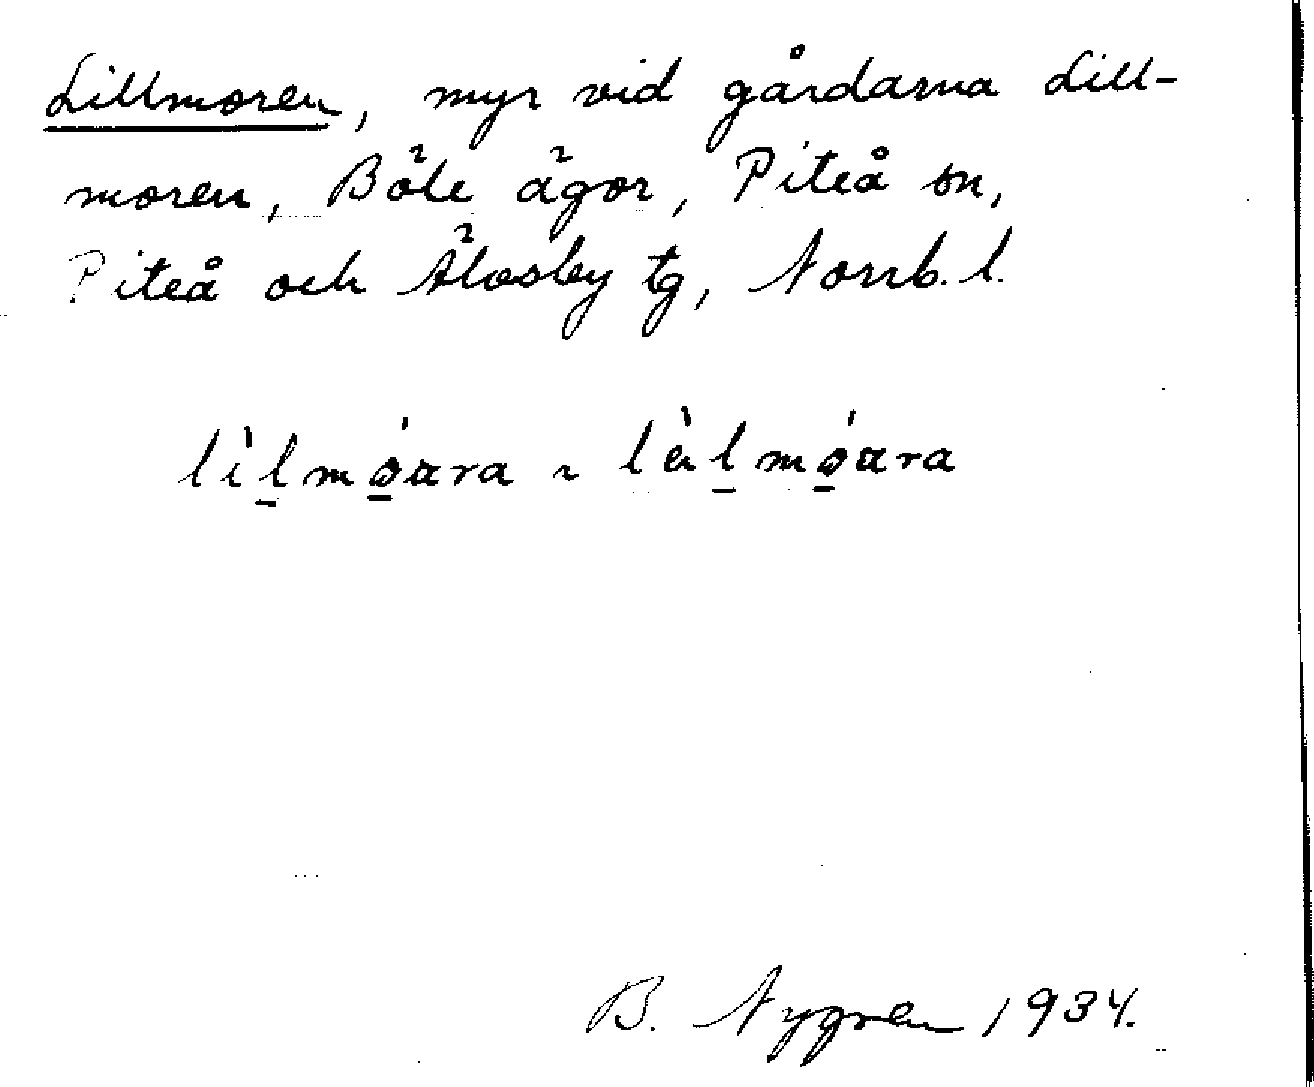 Lillmoren, myr vid gårdarna Lill-
moren, Böle ägor, Piteå sn,
Piteå och Älvsby tg, Norrb. l.
B. Nygren 1934.